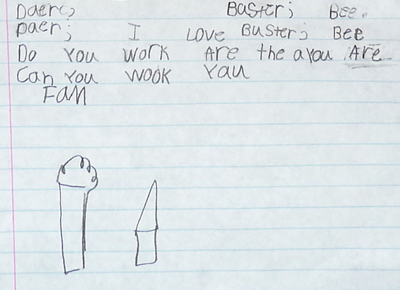 Daerc; Buster; Bee.
Daer; I Love Buster; Bee
Do You work Are the a you Are
Can You wook You
Fan